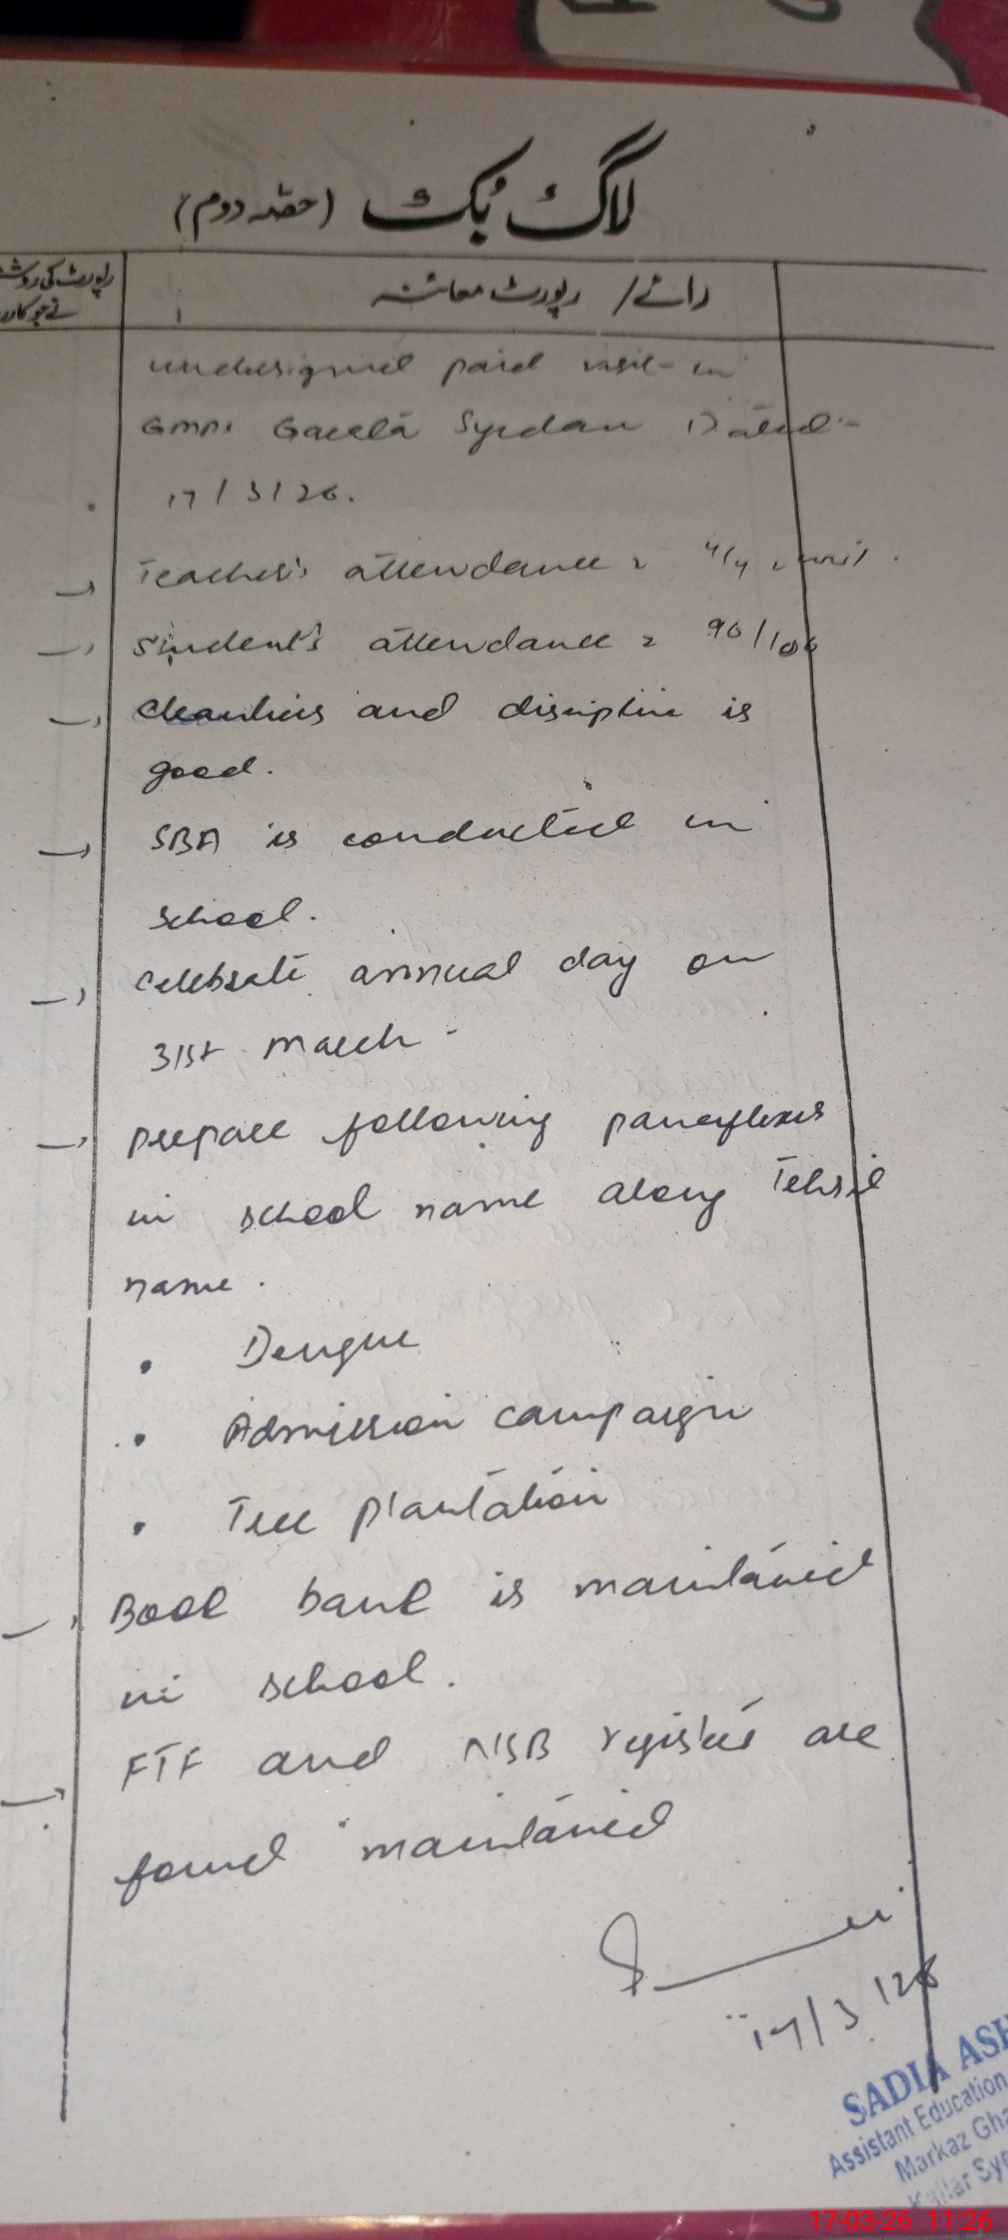 لاگ بُک (حصّہ دوم)
رائے / رپورٹ معائنہ
رپورٹ کی
undersigned paid visit in
GMPS Syedan Dated:-
17/3/26.
→ Teacher's attendance = 4/4
→ Student's attendance = 90/100
→ Cleanlines and discipline is
good.
→ SBA is conducted in
school.
→ Celebrate annual day on
31st March -
→ prepare following panaflexes
in school name along Tehsil
name.
• Dengue
• Admission campaign
• Tree plantation
→ Book bank is maintained
in school.
→ FTF and NSB register are
found maintained
17/3/26
SADIA ASH
Assistant Education
Markaz Gha
Kallar Sye
17-03-26 11:26